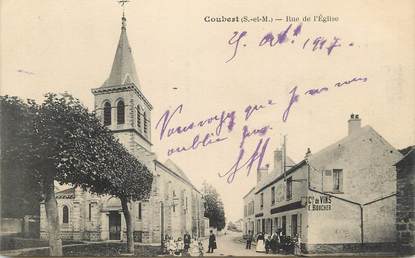 Coubert (S.-et-M.) — Rue de l'Église
5 Oct. 1917
Vous voyez que je ne vous
oublie pas
Cce de VINS
BOUCHER